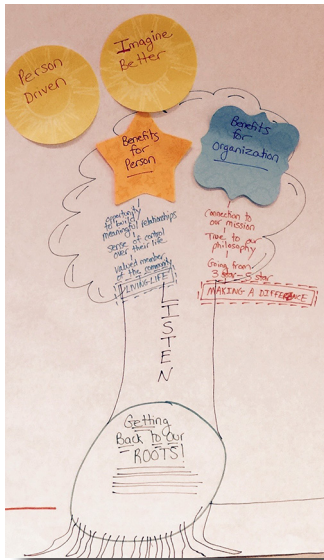 Person
Driven
Imagine
Better
Benefits
for
Person
Benefits
for
Organization
opportunity
to build
meaningful relationships
sense of control
over their life
valued member
of the community
LIVING LIFE
Connection to
our mission
True to our
philosophy
Going from
3 star → 5 star
MAKING A DIFFERENCE
LISTEN
Getting
Back to our
ROOTS!